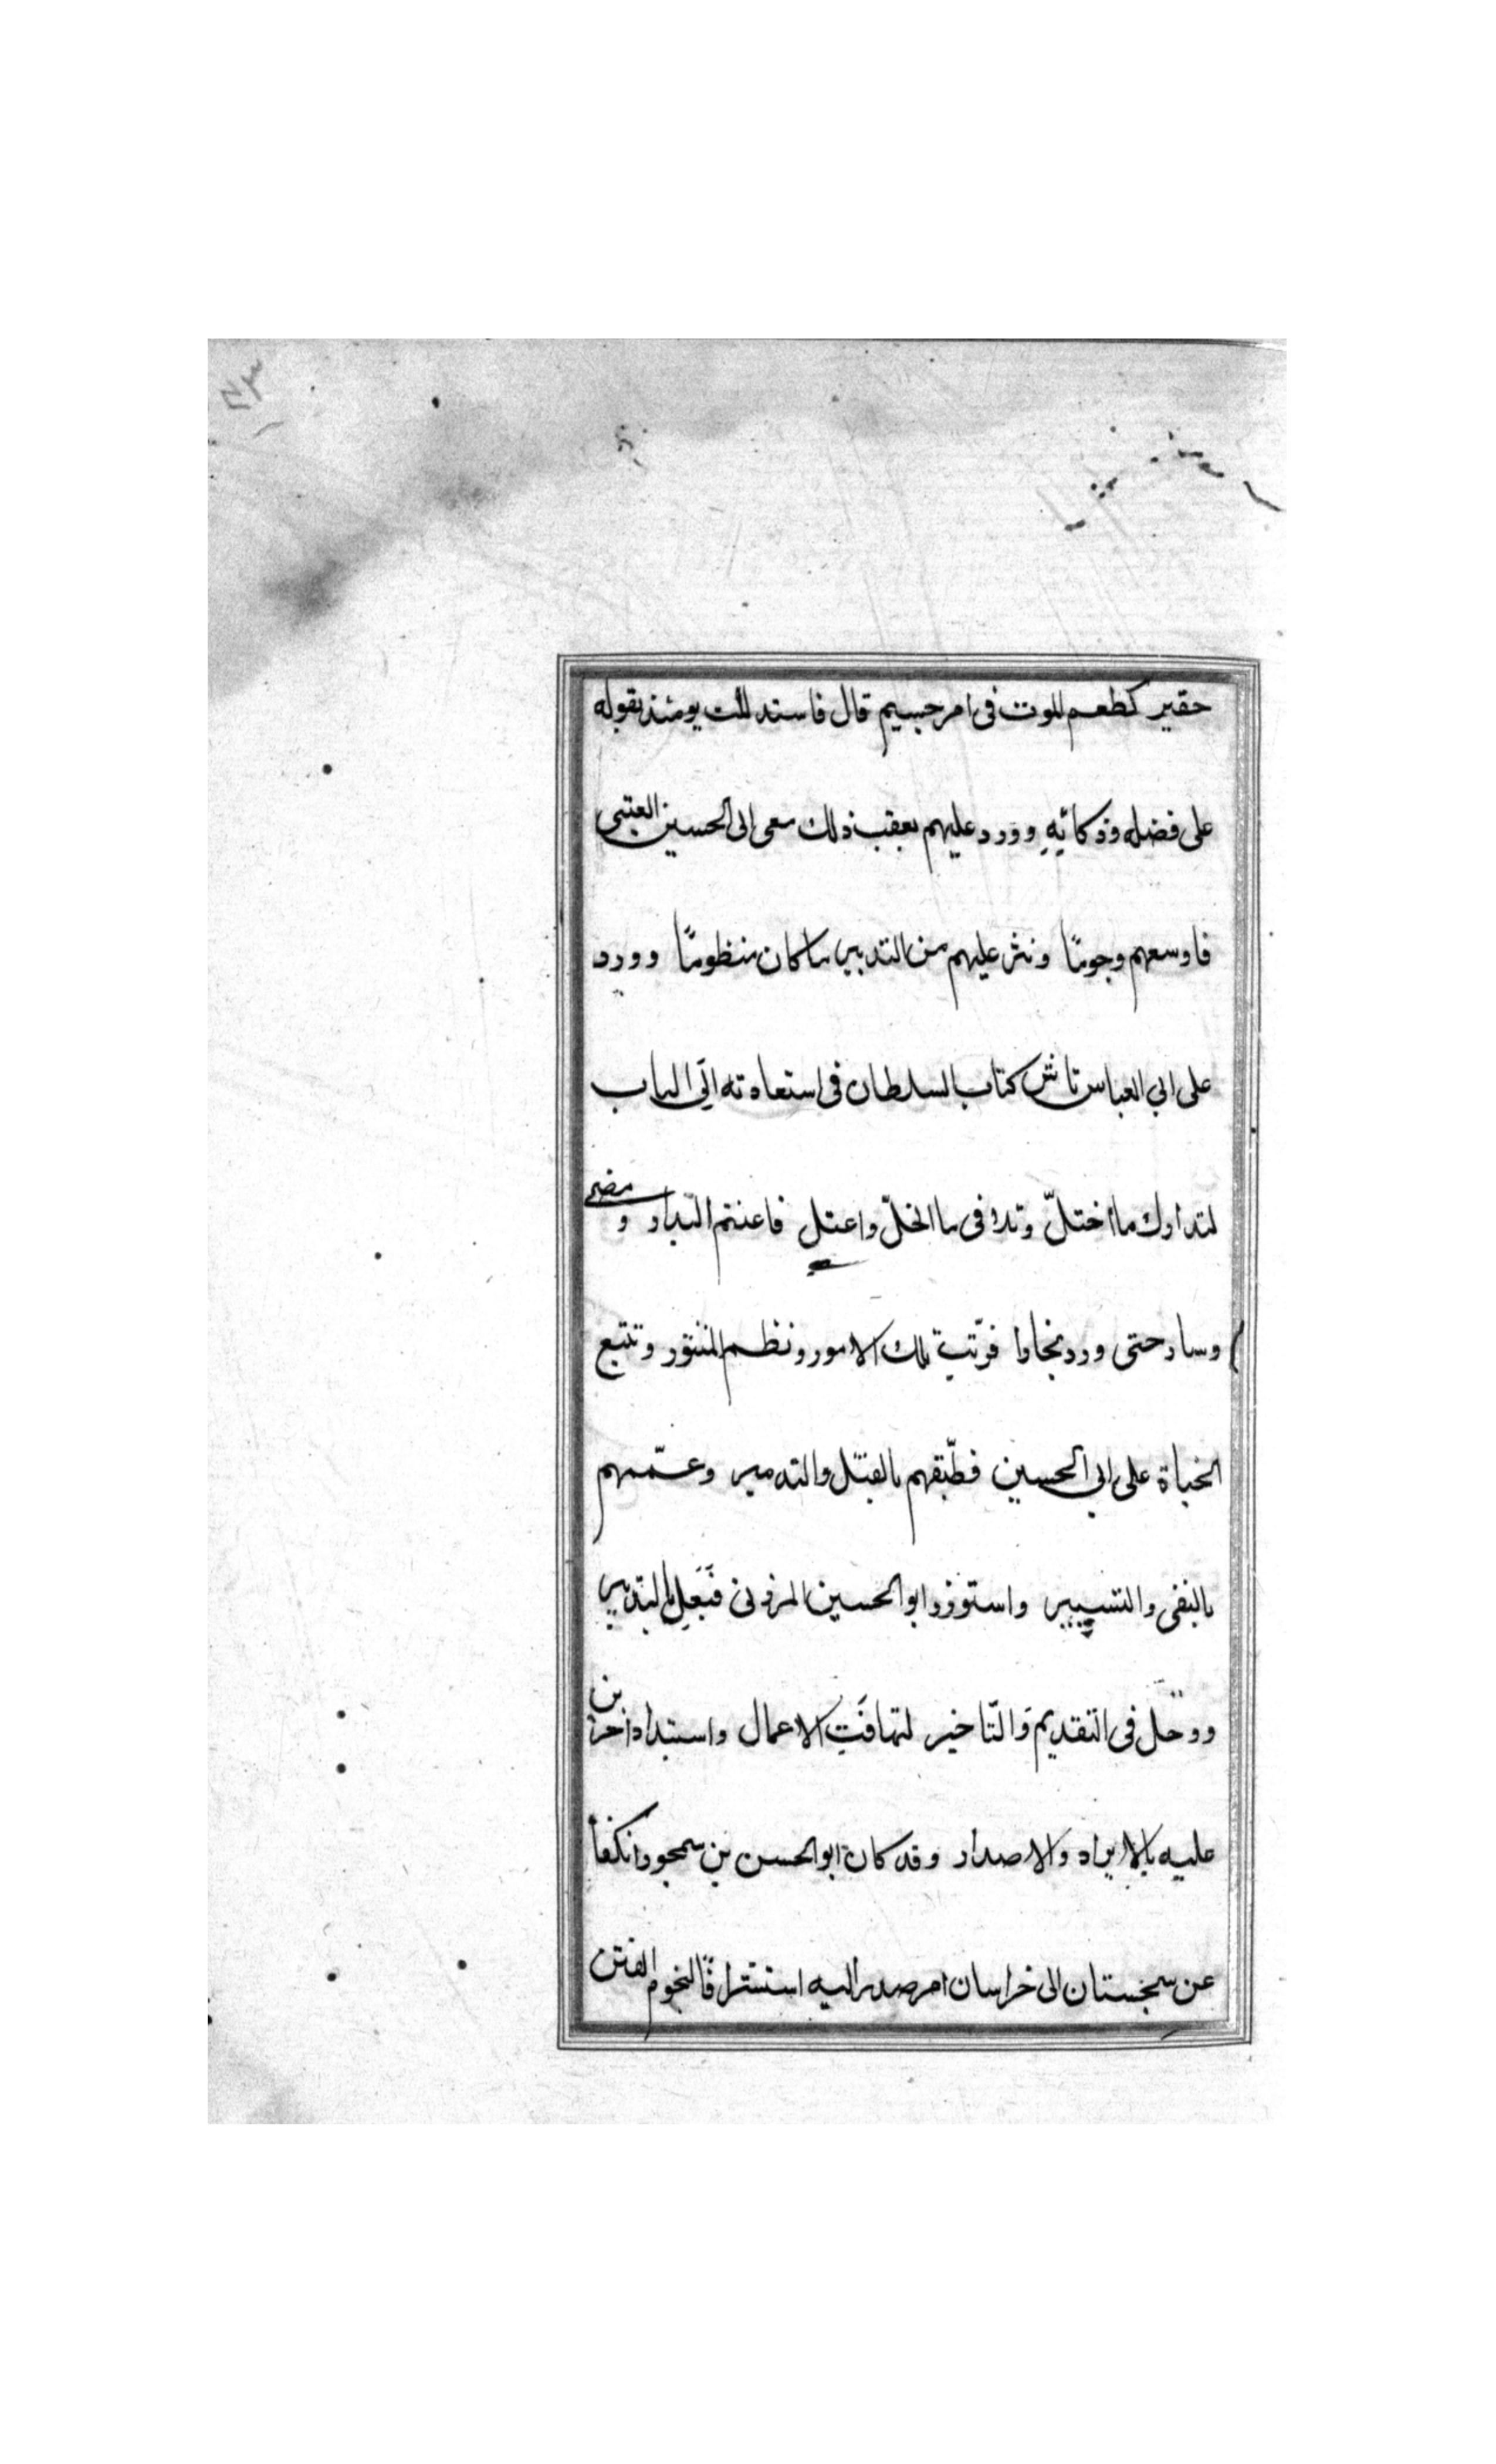 حقير كطعم الموت فى امر جسيم قال فاستدللت يومئذ بقوله
على فضله وذكائِهِ وورد عليهم بعقب ذلك نعى ابى الحسين العتبى
فاوسعهم وجومًا ونثر عليهم من التدبير ما كان منظومًا وورد
على ابي العباس تاش كتاب السلطان فى استعادته الى الباب
لتدارك ما اختلّ وتلافى ما انحلّ واعتل فاغتنم البدار ومضى
وسار حتى ورد بخارا فرتّب تلك الامور ونظم المنثور وتتبع
الجناة على ابي الحسين فطبّقهم بالقتل والتدمير وعمّمهم
بالنفى والتسيير واستوزر ابو الحسين المزنى فَبَعِل بالتدبير
ووحل فى التقديم والتّاخير لتهافَتِ الاعمال واستبداد اخرين
عليه بالايراد والاصدار وقد كان ابو الحسن بن سمجور انكفأ
عن سجستان الى خراسان امر صدر اليه استشرافًا لنجوم الفتن